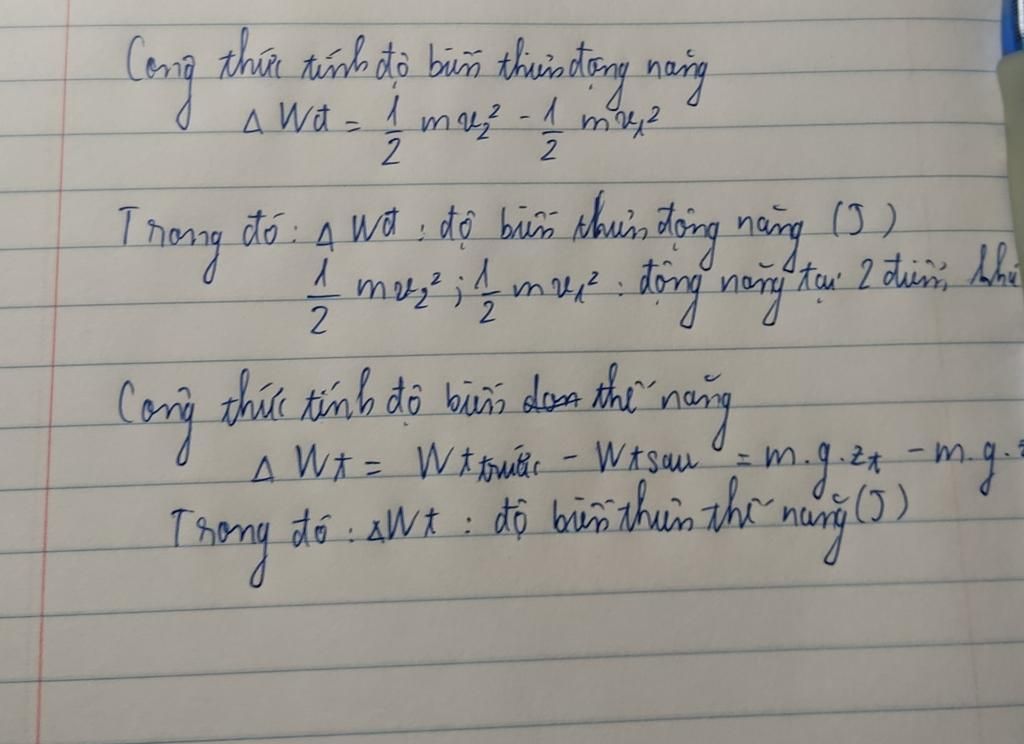 Công thức tính độ biến thiên động năng
Δ Wđ = 1/2 mv₂² - 1/2 mv₁²
Trong đó: Δ Wđ : độ biến thiên động năng (J)
1/2 mv₂² ; 1/2 mv₁² : động năng tại 2 điểm
Công thức tính độ biến thế năng
Δ Wt = Wt trước - Wt sau = m.g.zt - m.g.
Trong đó : ΔWt : độ biến thiên thế năng (J)